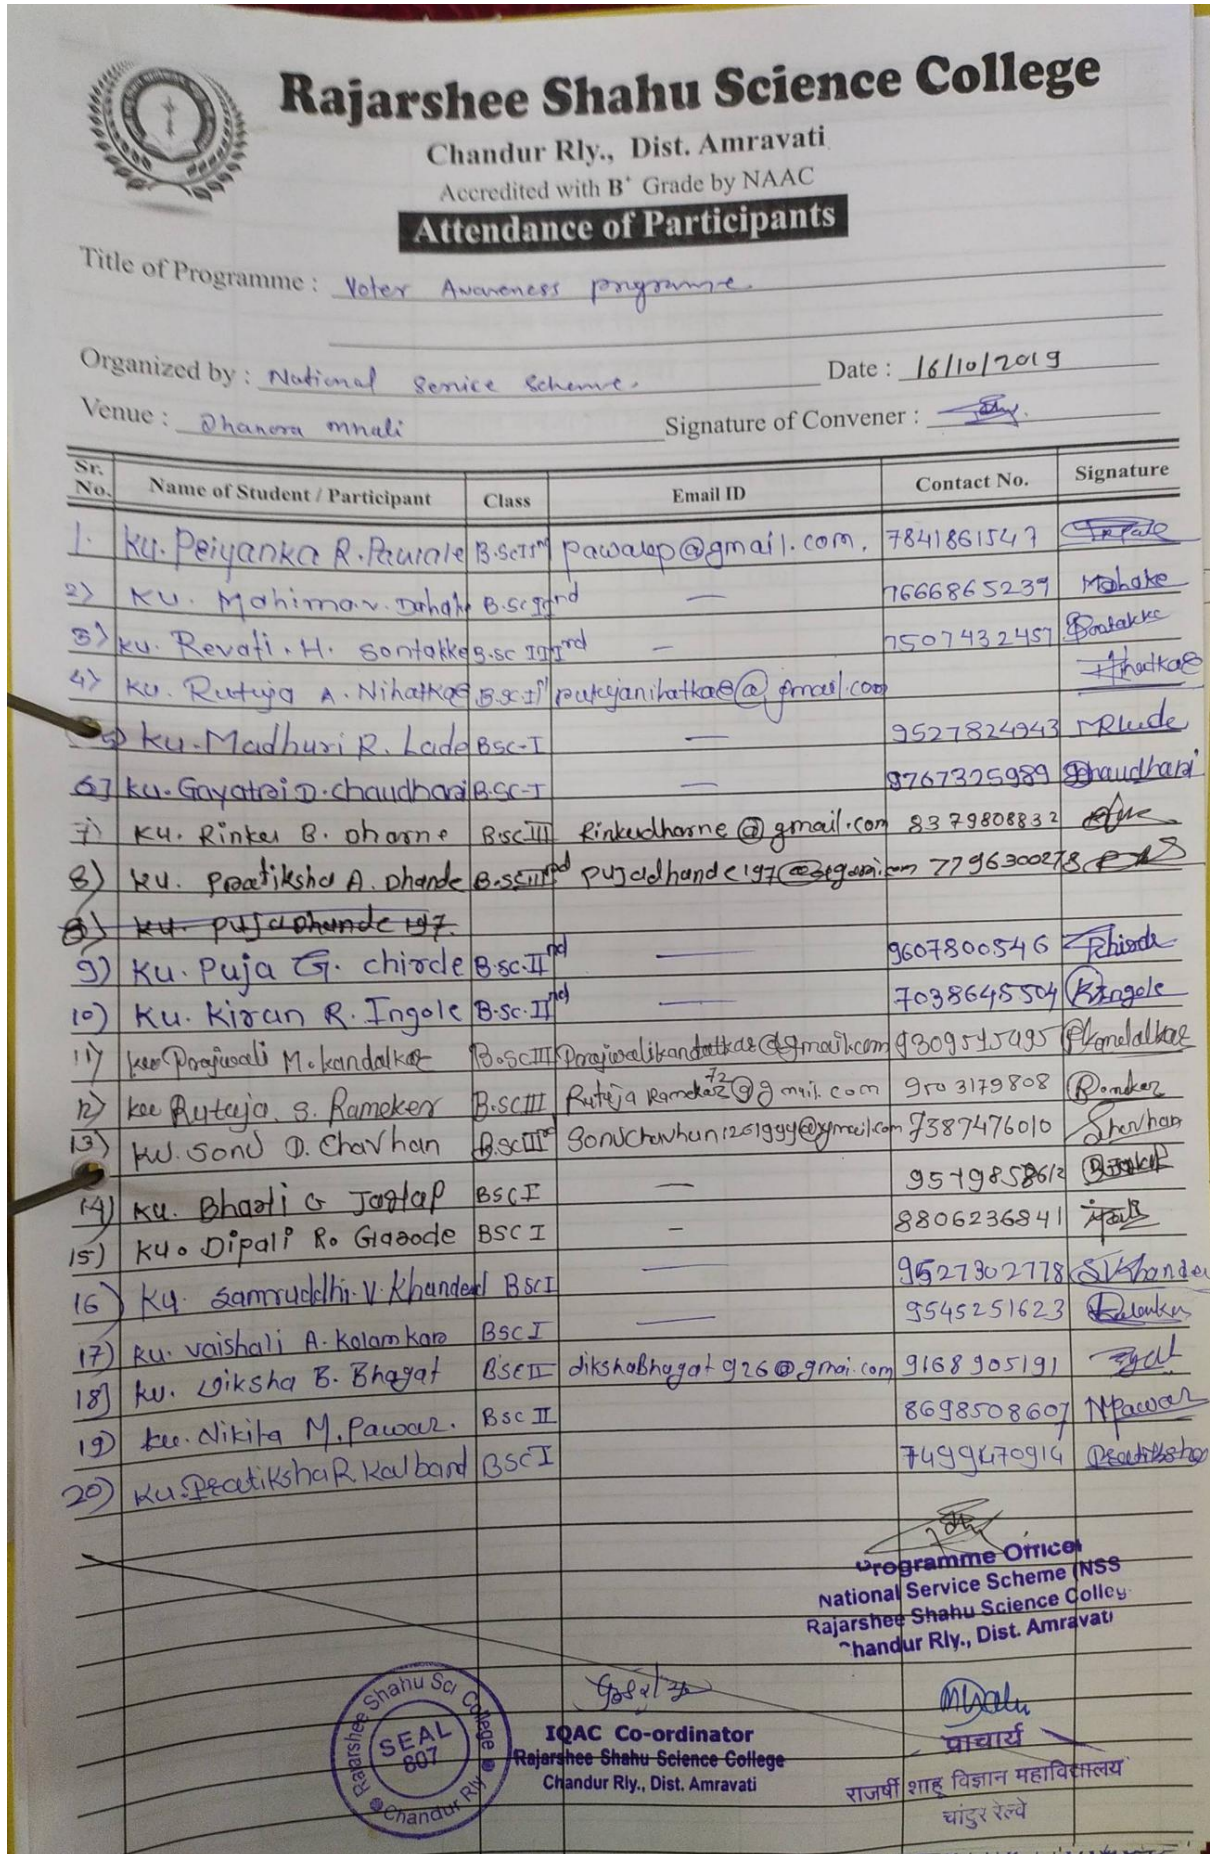 Rajarshee Shahu Science College
Chandur Rly., Dist. Amravati
Accredited with B+ Grade by NAAC
Attendance of Participants
Title of Programme : Voter Awareness programme.
Organized by : National Service Scheme. Date : 16/10/2019
Venue : Dhanora Mhali Signature of Convener :
Sr. No. Name of Student / Participant Class Email ID Contact No. Signature
1. Ku. Peiyanka R. Pawale B.Sc pawalep@gmail.com. 7841861547
2) Ku. Mahima.v. Dahake B.Sc IInd — 7666865239 Mahake
3) Ku. Revati. H. Sontakke B.sc IIIrd — 7507432457 Sontakke
4) Ku. Rutuja A. Nihatkae B.Sc-Ist Nihatkae
5) Ku. Madhuri R. Lade BSC-I — 9527824943 MRLade
6] Ku. Gayatri D. chaudhari B.SC-I — 9767325989 Chaudhari
7) Ku. Rinku B. Dharne B.SC III Rinkudharne@gmail.com 8379808832
8) Ku. Pratiksha A. Dhande B.SC III 7796300278
8) Ku. Puja Dhande 197.
9) Ku. Puja G. chirde B.SC.IInd — 9607800546 Pchirde
10) Ku. Kiran R. Ingole B.Sc.IInd — 7038645504 KIngole
11) Ku Prajwali M. Kandalkar B.SC III 9309595495 Pkandalkar
12) Ku Rutuja. S. Rameker B.SC III Ruteja Ramekar72@gmail.com 9503179808 Rameker
13) Ku. Sonu D. Chavhan B.SC III 7387476010
14) Ku. Bharti G Jagtap BSC I — 9579858612
15) Ku. Dipali R. Garode BSC I - 8806236841
16) Ku. Samruddhi. V. Khanded BSC I — 9527302778 SVKhande
17) Ku. Vaishali A. Kolamkar BSC I — 9545251623
18] Ku. Diksha B. Bhagat BSC II dikshaBhagat926@gmai.com 9168905191
19) Ku. Nikita M. Pawar. BSC II 8698508607 NPawar
20) Ku. Pratiksha R. Kalband BSC I 7499470914 Pratiksha
Programme Officer
National Service Scheme (NSS
Rajarshee Shahu Science Colleg
Chandur Rly., Dist. Amravati
Rajarshee Shahu Sci College
SEAL
607
Chandur Rly
IQAC Co-ordinator
Rajarshee Shahu Science College
Chandur Rly., Dist. Amravati
प्राचार्य
राजर्षी शाहू विज्ञान महाविद्यालय
चांदुर रेल्वे